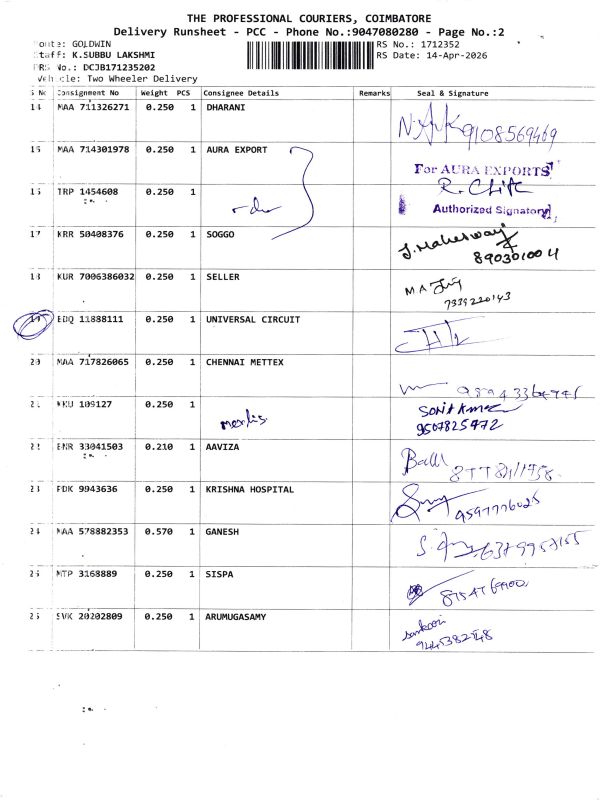 THE PROFESSIONAL COURIERS, COIMBATORE
Delivery Runsheet - PCC - Phone No.:9047080280 - Page No.:2
Route: GOLDWIN RS No.: 1712352
Staff: K.SUBBU LAKSHMI RS Date: 14-Apr-2026
DRS No.: DCJB171235202
Vehicle: Two Wheeler Delivery
S No Consignment No Weight PCS Consignee Details Remarks Seal & Signature
14 MAA 711326271 0.250 1 DHARANI
9108569469
15 MAA 714301978 0.250 1 AURA EXPORT
For AURA EXPORTS
16 TRP 1454608 0.250 1
Authorized Signatory
17 KRR 50408376 0.250 1 SOGGO
J. Maheswari
890301004
18 KUR 7006386032 0.250 1 SELLER
7339220143
19 EDQ 11888111 0.250 1 UNIVERSAL CIRCUIT
20 MAA 717826065 0.250 1 CHENNAI METTEX
21 KKU 109127 0.250 1
9507825472
22 BNR 33041503 0.210 1 AAVIZA
23 PDK 9943636 0.250 1 KRISHNA HOSPITAL
9597776025
24 MAA 578882353 0.570 1 GANESH
25 MTP 3168889 0.250 1 SISPA
26 SVK 20202809 0.250 1 ARUMUGASAMY
9445382148